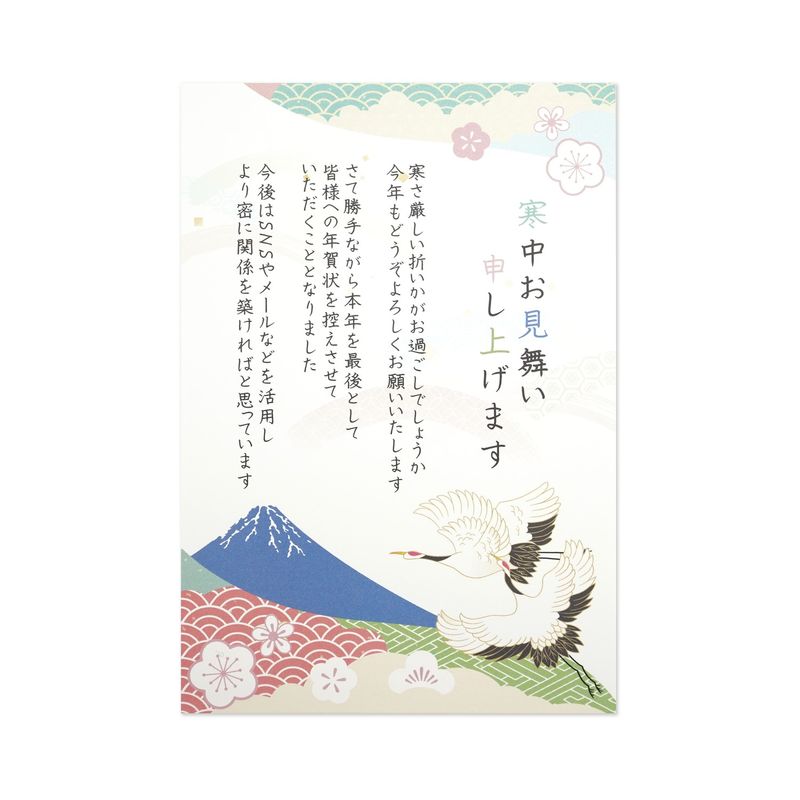 寒中お見舞い
申し上げます
寒さ厳しい折いかがお過ごしでしょうか
今年もどうぞよろしくお願いいたします
さて勝手ながら本年を最後として
皆様への年賀状を控えさせて
いただくこととなりました
今後はSNSやメールなどを活用し
より密に関係を築ければと思っています